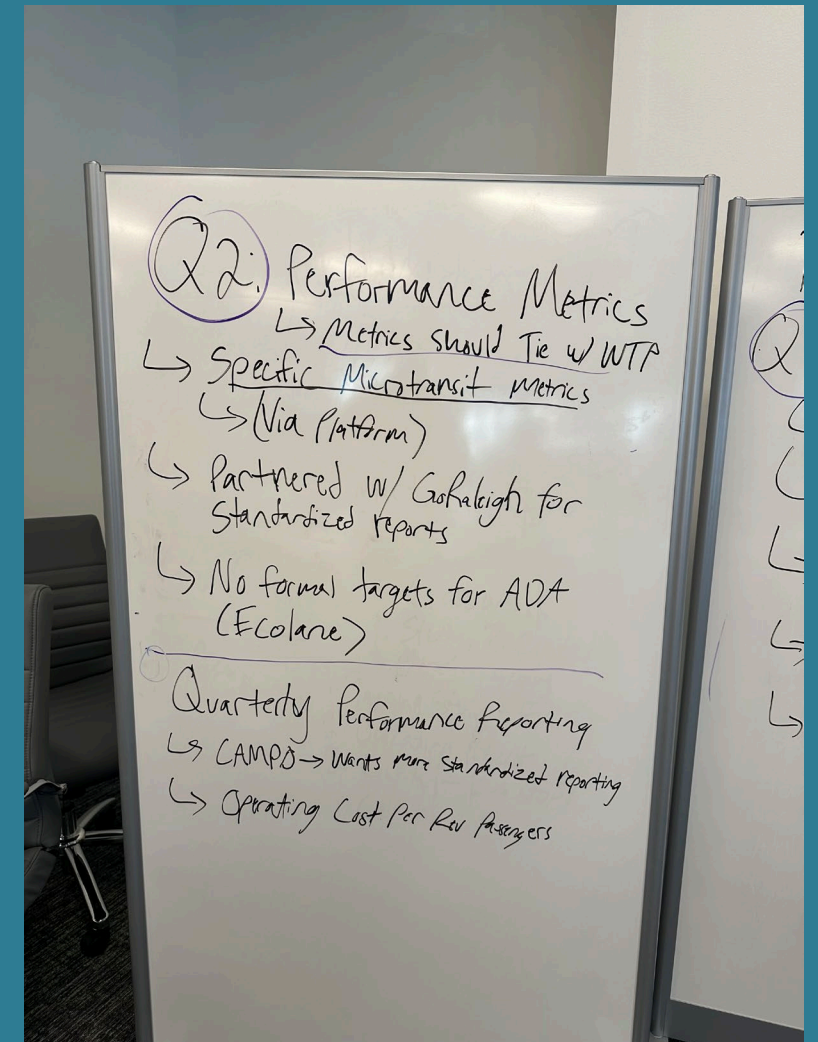 Q2: Performance Metrics
↳ Metrics Should Tie w/ WTP
↳ Specific Microtransit Metrics
↳ (Via Platform)
↳ Partnered w/ GoRaleigh for
Standardized reports
↳ No formal targets for ADA
(Ecolane)
Quarterly Performance Reporting
↳ CAMPO → Wants more Standardized reporting
↳ Operating Cost Per Rev Passengers
Q